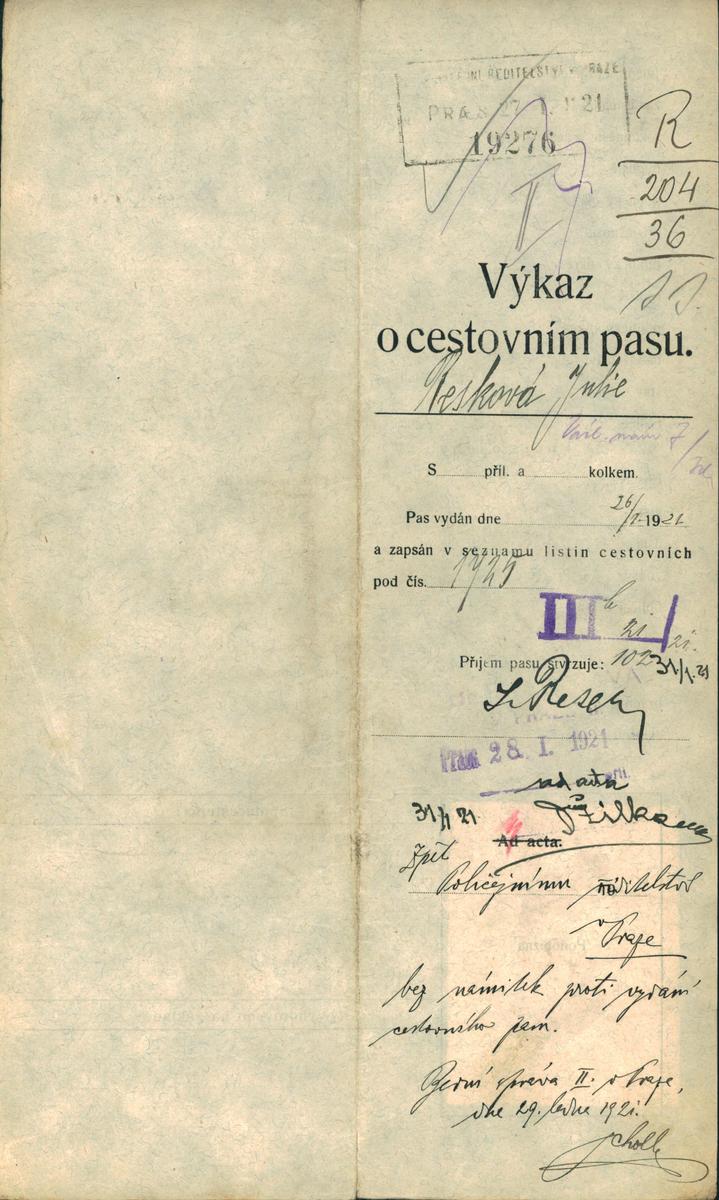 ŘEDITELSTVÍ V PRAZE
PRAES 27. I. 1921
19276
II
R
204
36
Výkaz
o cestovním pasu.
Resková Julie
S příl. a kolkem.
Pas vydán dne 26/I. 1921
a zapsán v seznamu listin cestovních
pod čís. 1925
III b
21
Příjem pasu stvrzuje: 102 31/1. 21
Praes 28. I. 1921
ad acta
31/1 21
Ad acta.
Zpět
Policejnímu ředitelství
v Praze
bez námitek proti vydání
cestovního pasu.
Berní správa II. v Praze,
dne 29. ledna 1921.